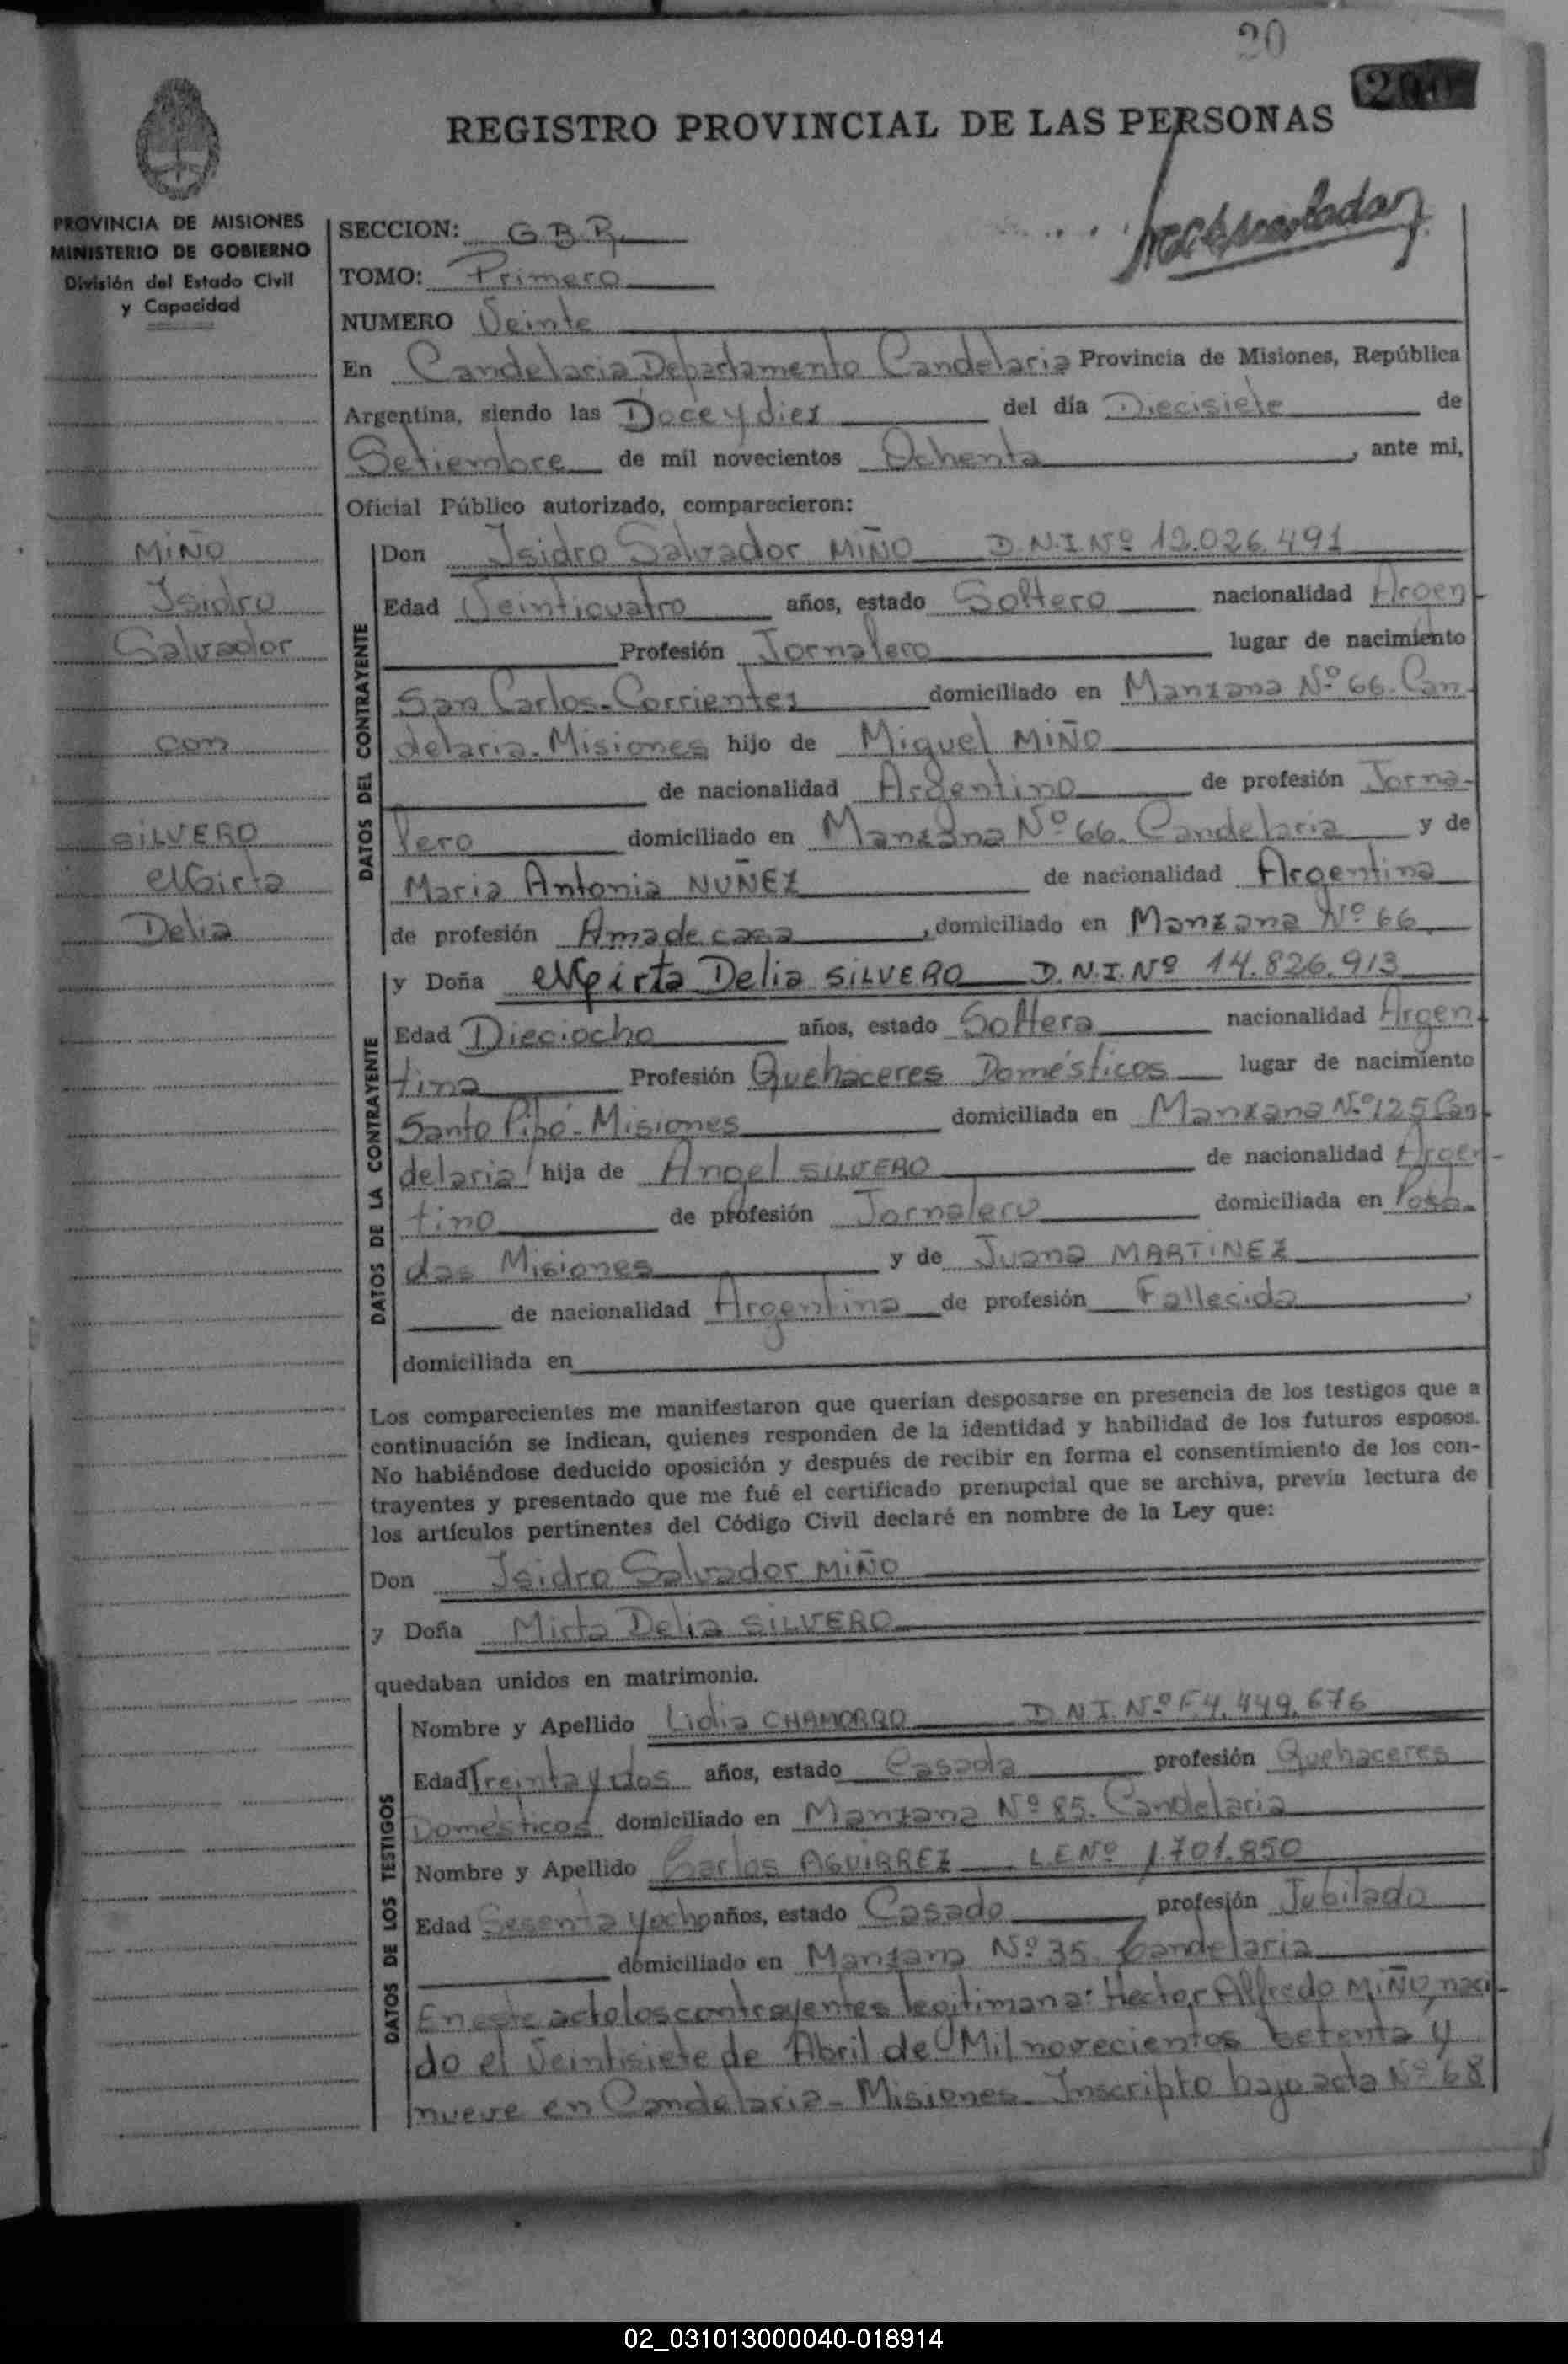 20
200
REGISTRO PROVINCIAL DE LAS PERSONAS
PROVINCIA DE MISIONES
MINISTERIO DE GOBIERNO
División del Estado Civil
y Capacidad
MIÑO
Isidro
Salvador
con
SILVERO
Mirta
Delia
SECCION: G.B.R.
TOMO: Primero
NUMERO Veinte
En Candelaria Departamento Candelaria Provincia de Misiones, República
Argentina, siendo las Doce y diez del día Diecisiete de
Setiembre de mil novecientos Ochenta, ante mi,
Oficial Público autorizado, comparecieron:
DATOS DEL CONTRAYENTE
Don Isidro Salvador MIÑO D.N.I Nº 12.026.491
Edad Veinticuatro años, estado Soltero nacionalidad Argen-
Profesión Jornalero lugar de nacimiento
San Carlos-Corrientes domiciliado en Manzana Nº 66-Can-
delaria-Misiones hijo de Miguel MIÑO
de nacionalidad Argentino de profesión Jorna-
lero domiciliado en Manzana Nº 66. Candelaria y de
Maria Antonia NUÑEZ de nacionalidad Argentina
de profesión Ama de casa, domiciliado en Manzana Nº 66.
DATOS DE LA CONTRAYENTE
y Doña Mirta Delia SILVERO D.N.I. Nº 14.826.913
Edad Dieciocho años, estado Soltera nacionalidad Argen-
tina Profesión Quehaceres Domésticos lugar de nacimiento
Santo Pipó-Misiones domiciliada en Manzana Nº 125 Can-
delaria hija de Angel SILVERO de nacionalidad Argen-
tino de profesión Jornalero domiciliada en Posa-
das Misiones y de Juana MARTINEZ
de nacionalidad Argentina de profesión Fallecida,
domiciliada en
Los comparecientes me manifestaron que querían desposarse en presencia de los testigos que a
continuación se indican, quienes responden de la identidad y habilidad de los futuros esposos.
No habiéndose deducido oposición y después de recibir en forma el consentimiento de los con-
trayentes y presentado que me fué el certificado prenupcial que se archiva, previa lectura de
los artículos pertinentes del Código Civil declaré en nombre de la Ley que:
Don Isidro Salvador MIÑO
y Doña Mirta Delia SILVERO
quedaban unidos en matrimonio.
DATOS DE LOS TESTIGOS
Nombre y Apellido Lidia CHAMORRO D.N.I. Nº F.4.449.676
Edad Treinta y dos años, estado Casada profesión Quehaceres
Domésticos domiciliado en Manzana Nº 85. Candelaria
Nombre y Apellido Carlos AGUIRREZ L.E Nº 1.701.850
Edad Sesenta y ocho años, estado Casado profesión Jubilado
domiciliado en Manzana Nº 35. Candelaria
En este acto los contrayentes legitiman a: Hector Alfredo MIÑO, naci-
do el Veintisiete de Abril de Mil novecientos setenta y
nueve en Candelaria-Misiones Inscripto bajo acta Nº 68
02_031013000040-018914